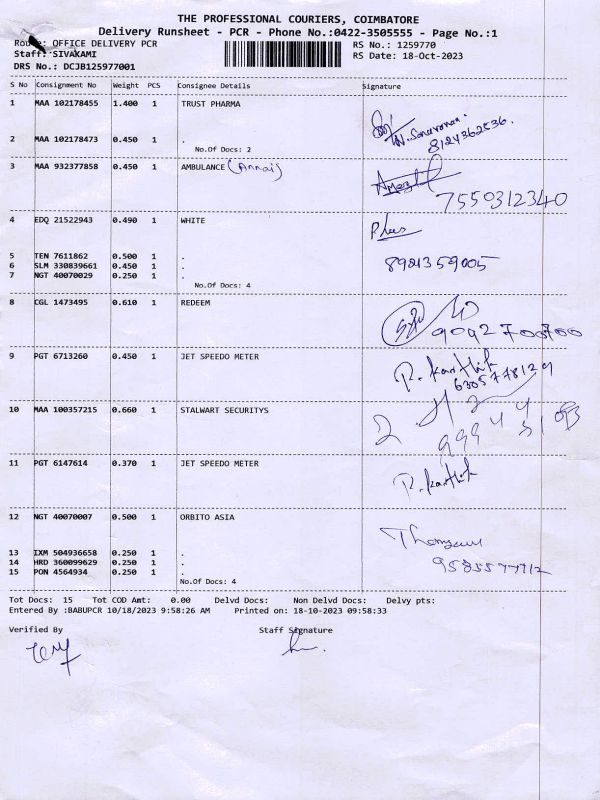 THE PROFESSIONAL COURIERS, COIMBATORE
Delivery Runsheet - PCR - Phone No.:0422-3505555 - Page No.:1
Route: OFFICE DELIVERY PCR RS No.: 1259770
Staff: SIVAKAMI RS Date: 18-Oct-2023
DRS No.: DCJB125977001
S No Consignment No Weight PCS Consignee Details Signature
1 MAA 102178455 1.400 1 TRUST PHARMA
2 MAA 102178473 0.450 1 . 8124362536.
No.Of Docs: 2
3 MAA 932377858 0.450 1 AMBULANCE (Annai)
7550312340
4 EDQ 21522943 0.490 1 WHITE
5 TEN 7611862 0.500 1 .
6 SLM 330839661 0.450 1 . 8921359005
7 NGT 40070029 0.250 1 .
No.Of Docs: 4
8 CGL 1473495 0.610 1 REDEEM
9092700700
9 PGT 6713260 0.450 1 JET SPEEDO METER
R. Karthik
6305778129
10 MAA 100357215 0.660 1 STALWART SECURITYS
11 PGT 6147614 0.370 1 JET SPEEDO METER
R. Karthik
12 NGT 40070007 0.500 1 ORBITO ASIA
13 IXM 504936658 0.250 1 .
14 HRD 360099629 0.250 1 . 9585577712
15 PON 4564934 0.250 1 .
No.Of Docs: 4
Tot Docs: 15 Tot COD Amt: 0.00 Delvd Docs: Non Delvd Docs: Delvy pts:
Entered By :BABUPCR 10/18/2023 9:58:26 AM Printed on: 18-10-2023 09:58:33
Verified By Staff Signature